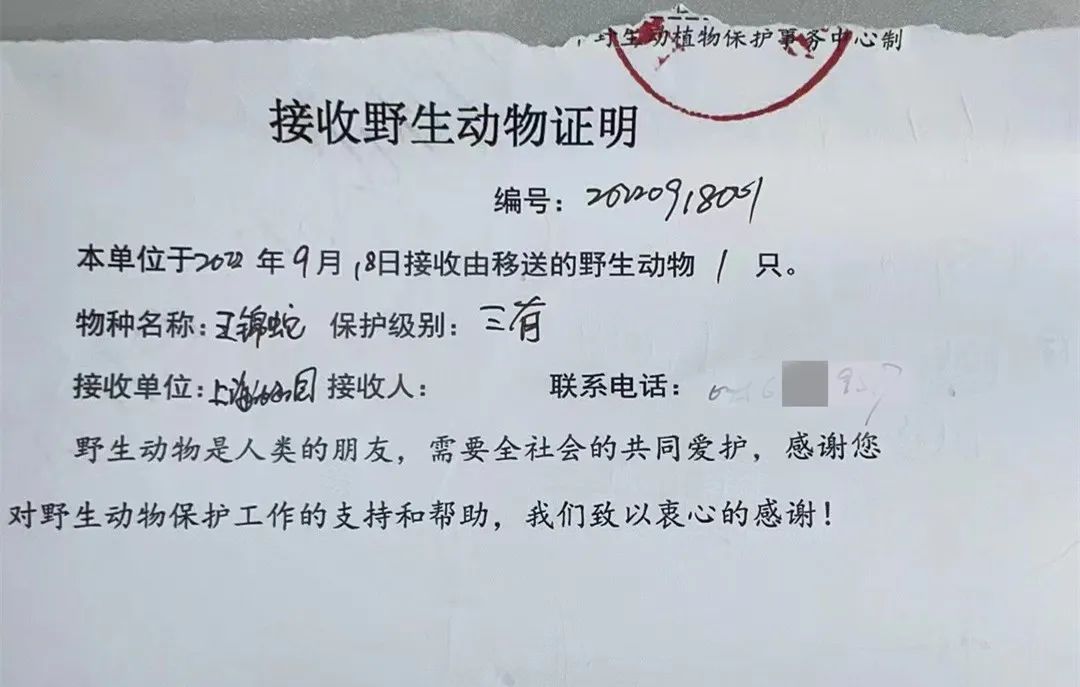 野生动植物保护事务中心制
接收野生动物证明
编号：20220918001
本单位于2022年9月18日接收由移送的野生动物 1 只。
物种名称：王锦蛇 保护级别：三有
接收单位：上海动物园 接收人： 联系电话：
野生动物是人类的朋友，需要全社会的共同爱护，感谢您
对野生动物保护工作的支持和帮助，我们致以衷心的感谢！